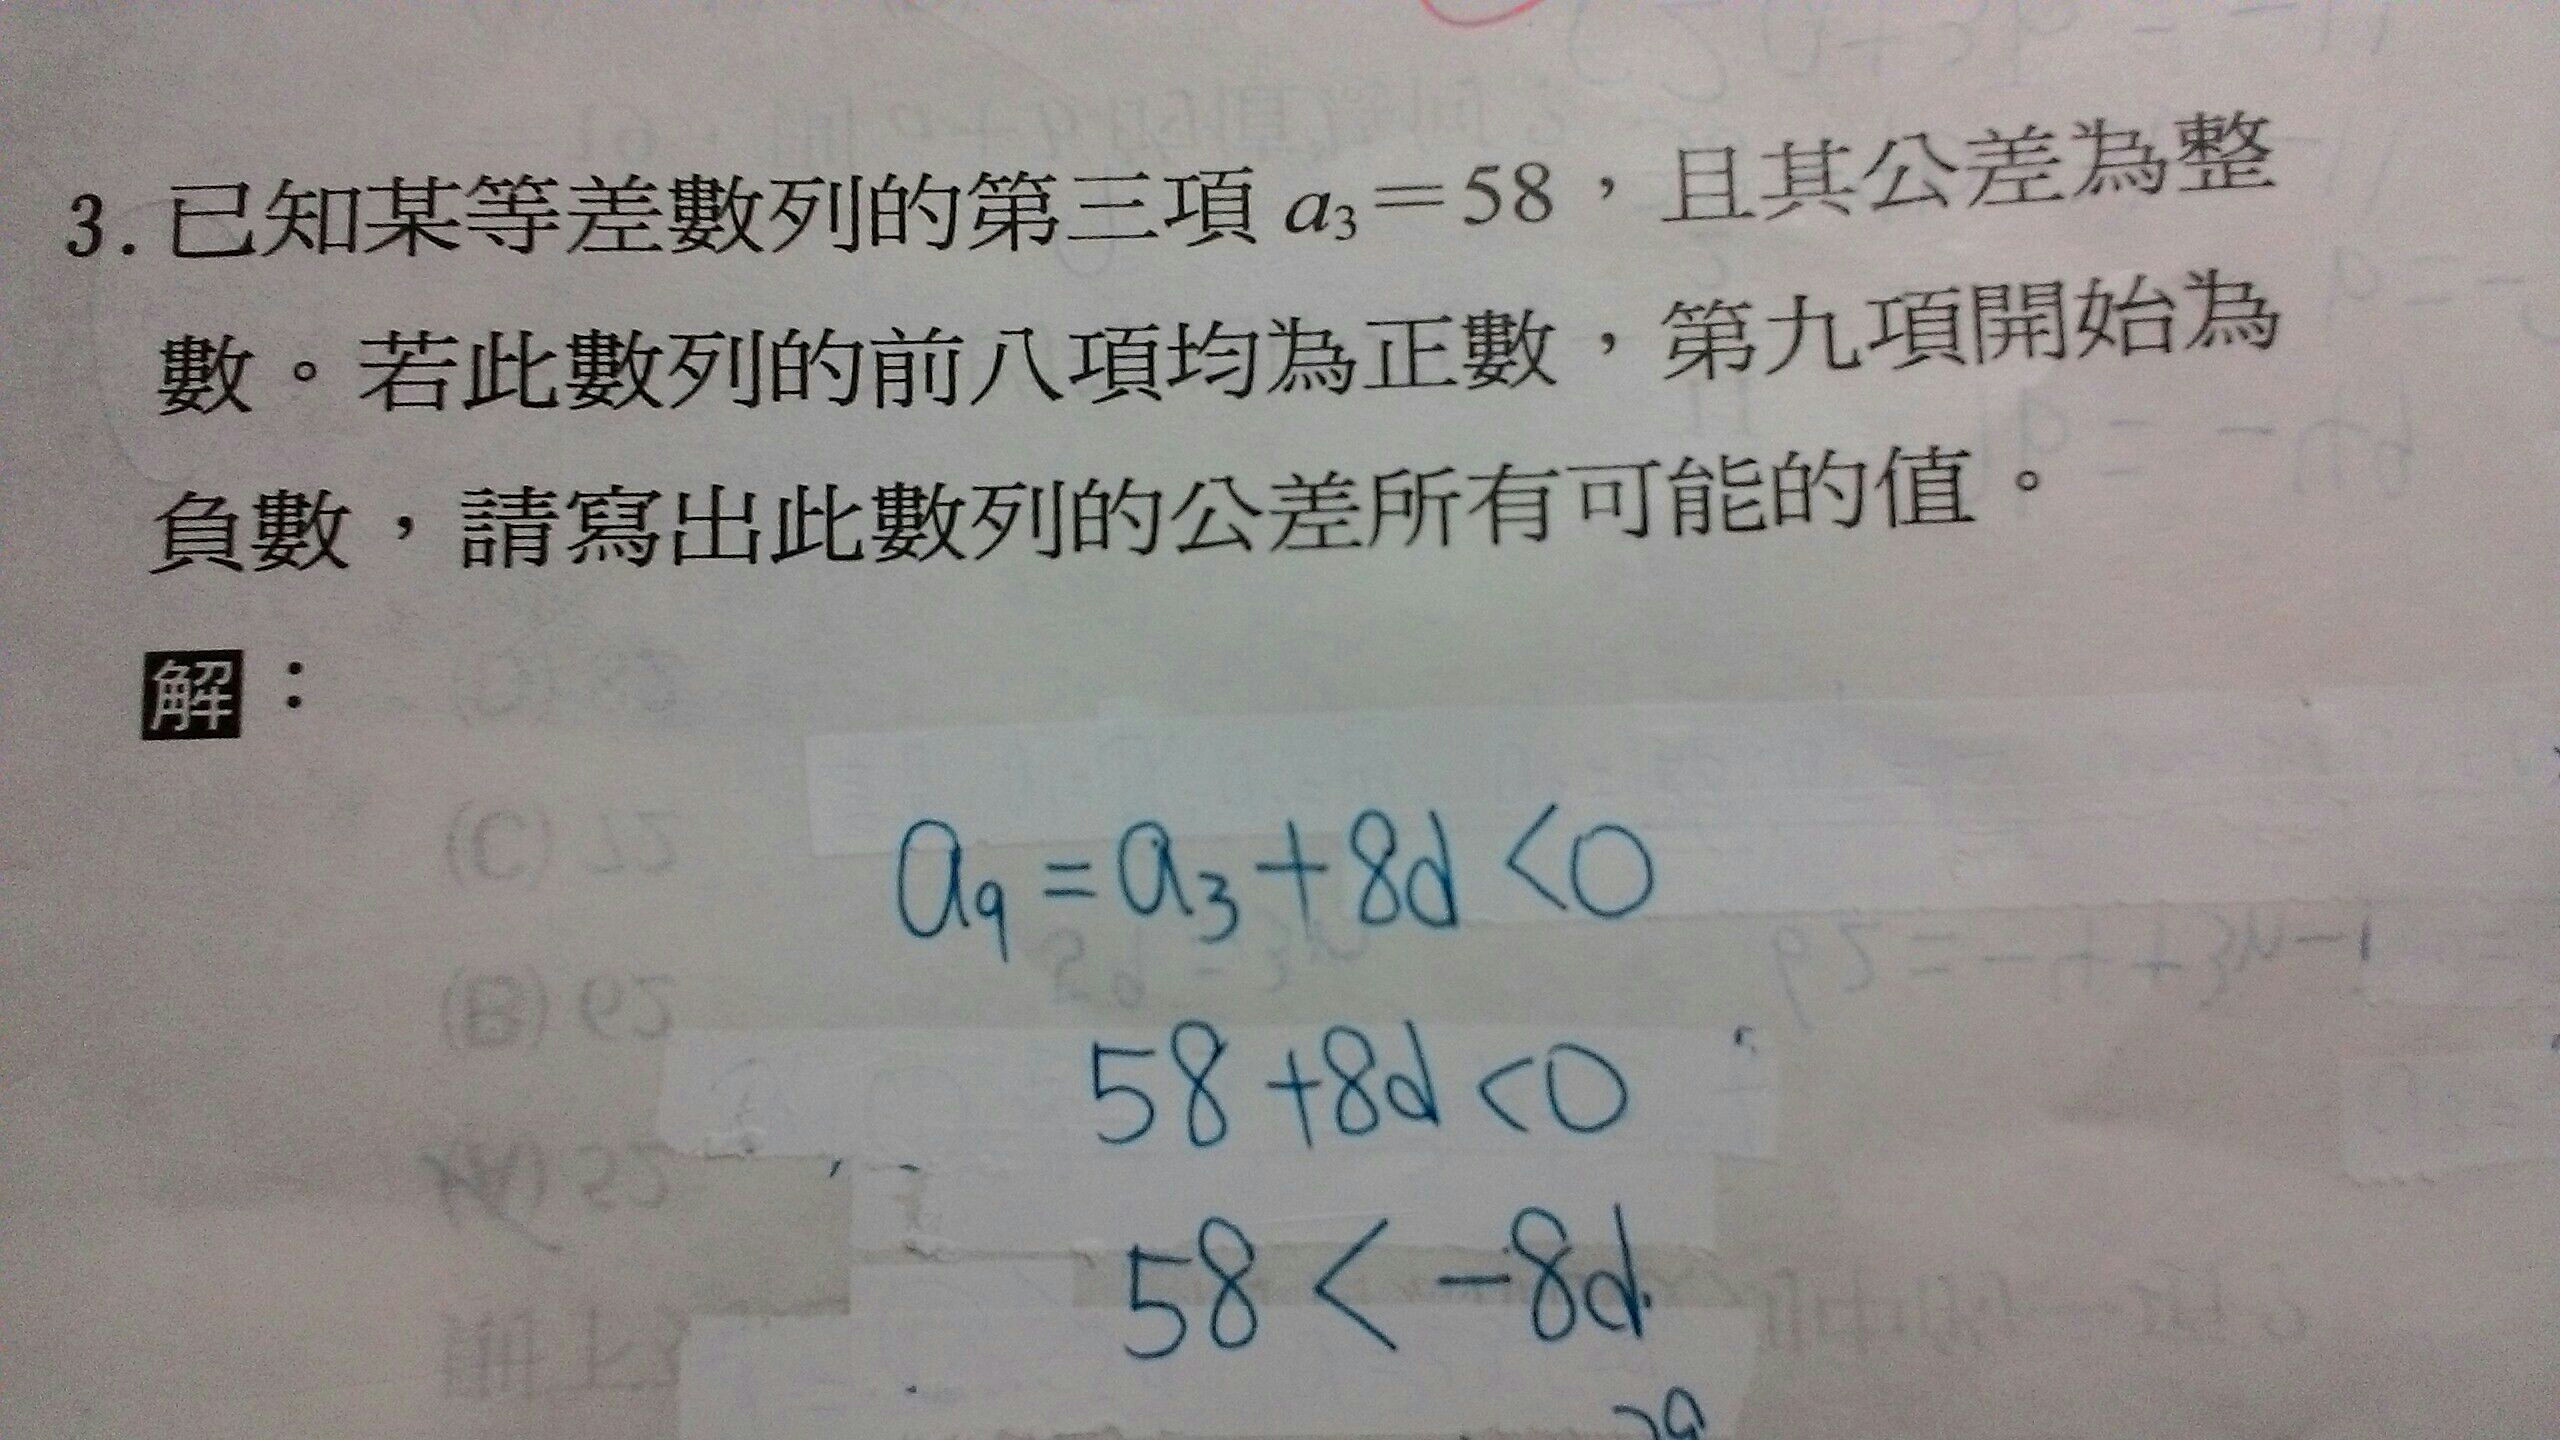 3. 已知某等差數列的第三項 a₃＝58，且其公差為整
數。若此數列的前八項均為正數，第九項開始為
負數，請寫出此數列的公差所有可能的值。
解：
a₉ = a₃ + 8d < 0
58 + 8d < 0
58 < -8d